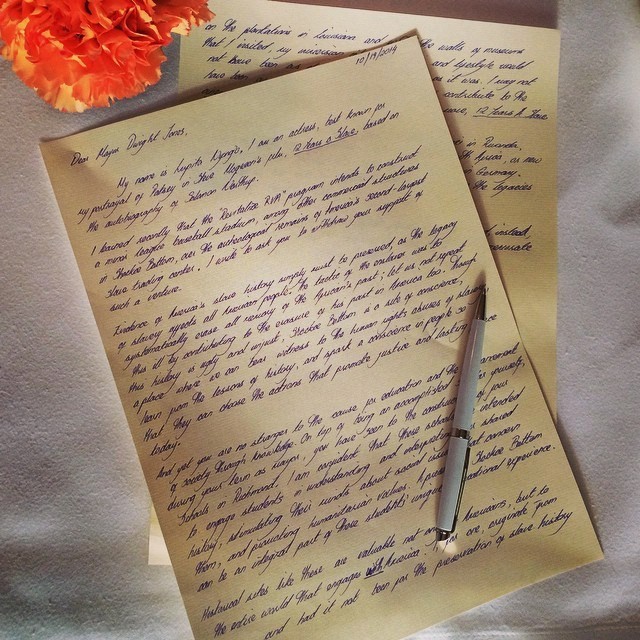 10/19/2014
Dear Mayor Dwight Jones,
My name is Lupita Nyong'o, I am an actress, best known for
my portrayal of Patsey in Steve McQueen's film, 12 Years a Slave, based on
the autobiography of Solomon Northup.
I learned recently that the "Revitalize RVA" program intends to construct
a minor league baseball stadium, among other commercial structures
in Shockoe Bottom, over the archeological remains of America's second-largest
slave trading center. I write to ask you to withdraw your support of
such a venture.
Evidence of America's slave history simply must be preserved, as the legacy
of slavery affects all American people. The tactic of the enslavers was to
systematically erase all memory of the African's past; let us not repeat
this ill by contributing to the erasure of his past in America too. Though
this history is ugly and unjust, Shockoe Bottom is a site of conscience,
a place where we can bear witness to the human rights abuses of slavery,
learn from the lessons of history, and spark a conscience in people so
that they can choose the actions that promote justice and lasting peace
today.
And yet you are no strangers to the cause for education and the
of society through knowledge. On top of being an accomplished yourself,
during your term as mayor, you have seen to the construction of four
schools in Richmond. I am confident that these schools are intended
to engage students in understanding and interpreting our shared
history, stimulating their minds about social issues that concern
them, and promoting humanitarian values. Shockoe Bottom
can be an integral part of these students' unique educational experience.
Historical sites like these are valuable not only Americans, but to
the entire world that engages with America. I, for one, originate from
and had it not been for the preservation of slave history
on the plantations in Louisiana and the walls of museums
that I visited, my and lifestyle would
not have been as it was. I may not
have been contribute to the
12 Years A Slave
in Rwanda,
South Africa, as new
in Germany.
the legacies
instead